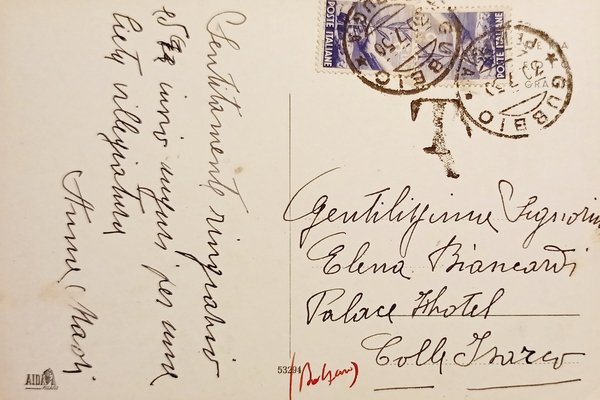 Sentitamente ringrazio
ed invio auguri per una
lieta villeggiatura
POSTE ITALIANE
POSTE ITALIANE
GUBBIO
GUBBIO
T
Gentilissime Signorin
Elena Biancardi
Palace Hhotel
Colle Isarco
(Bolzano)
53294
AIDA